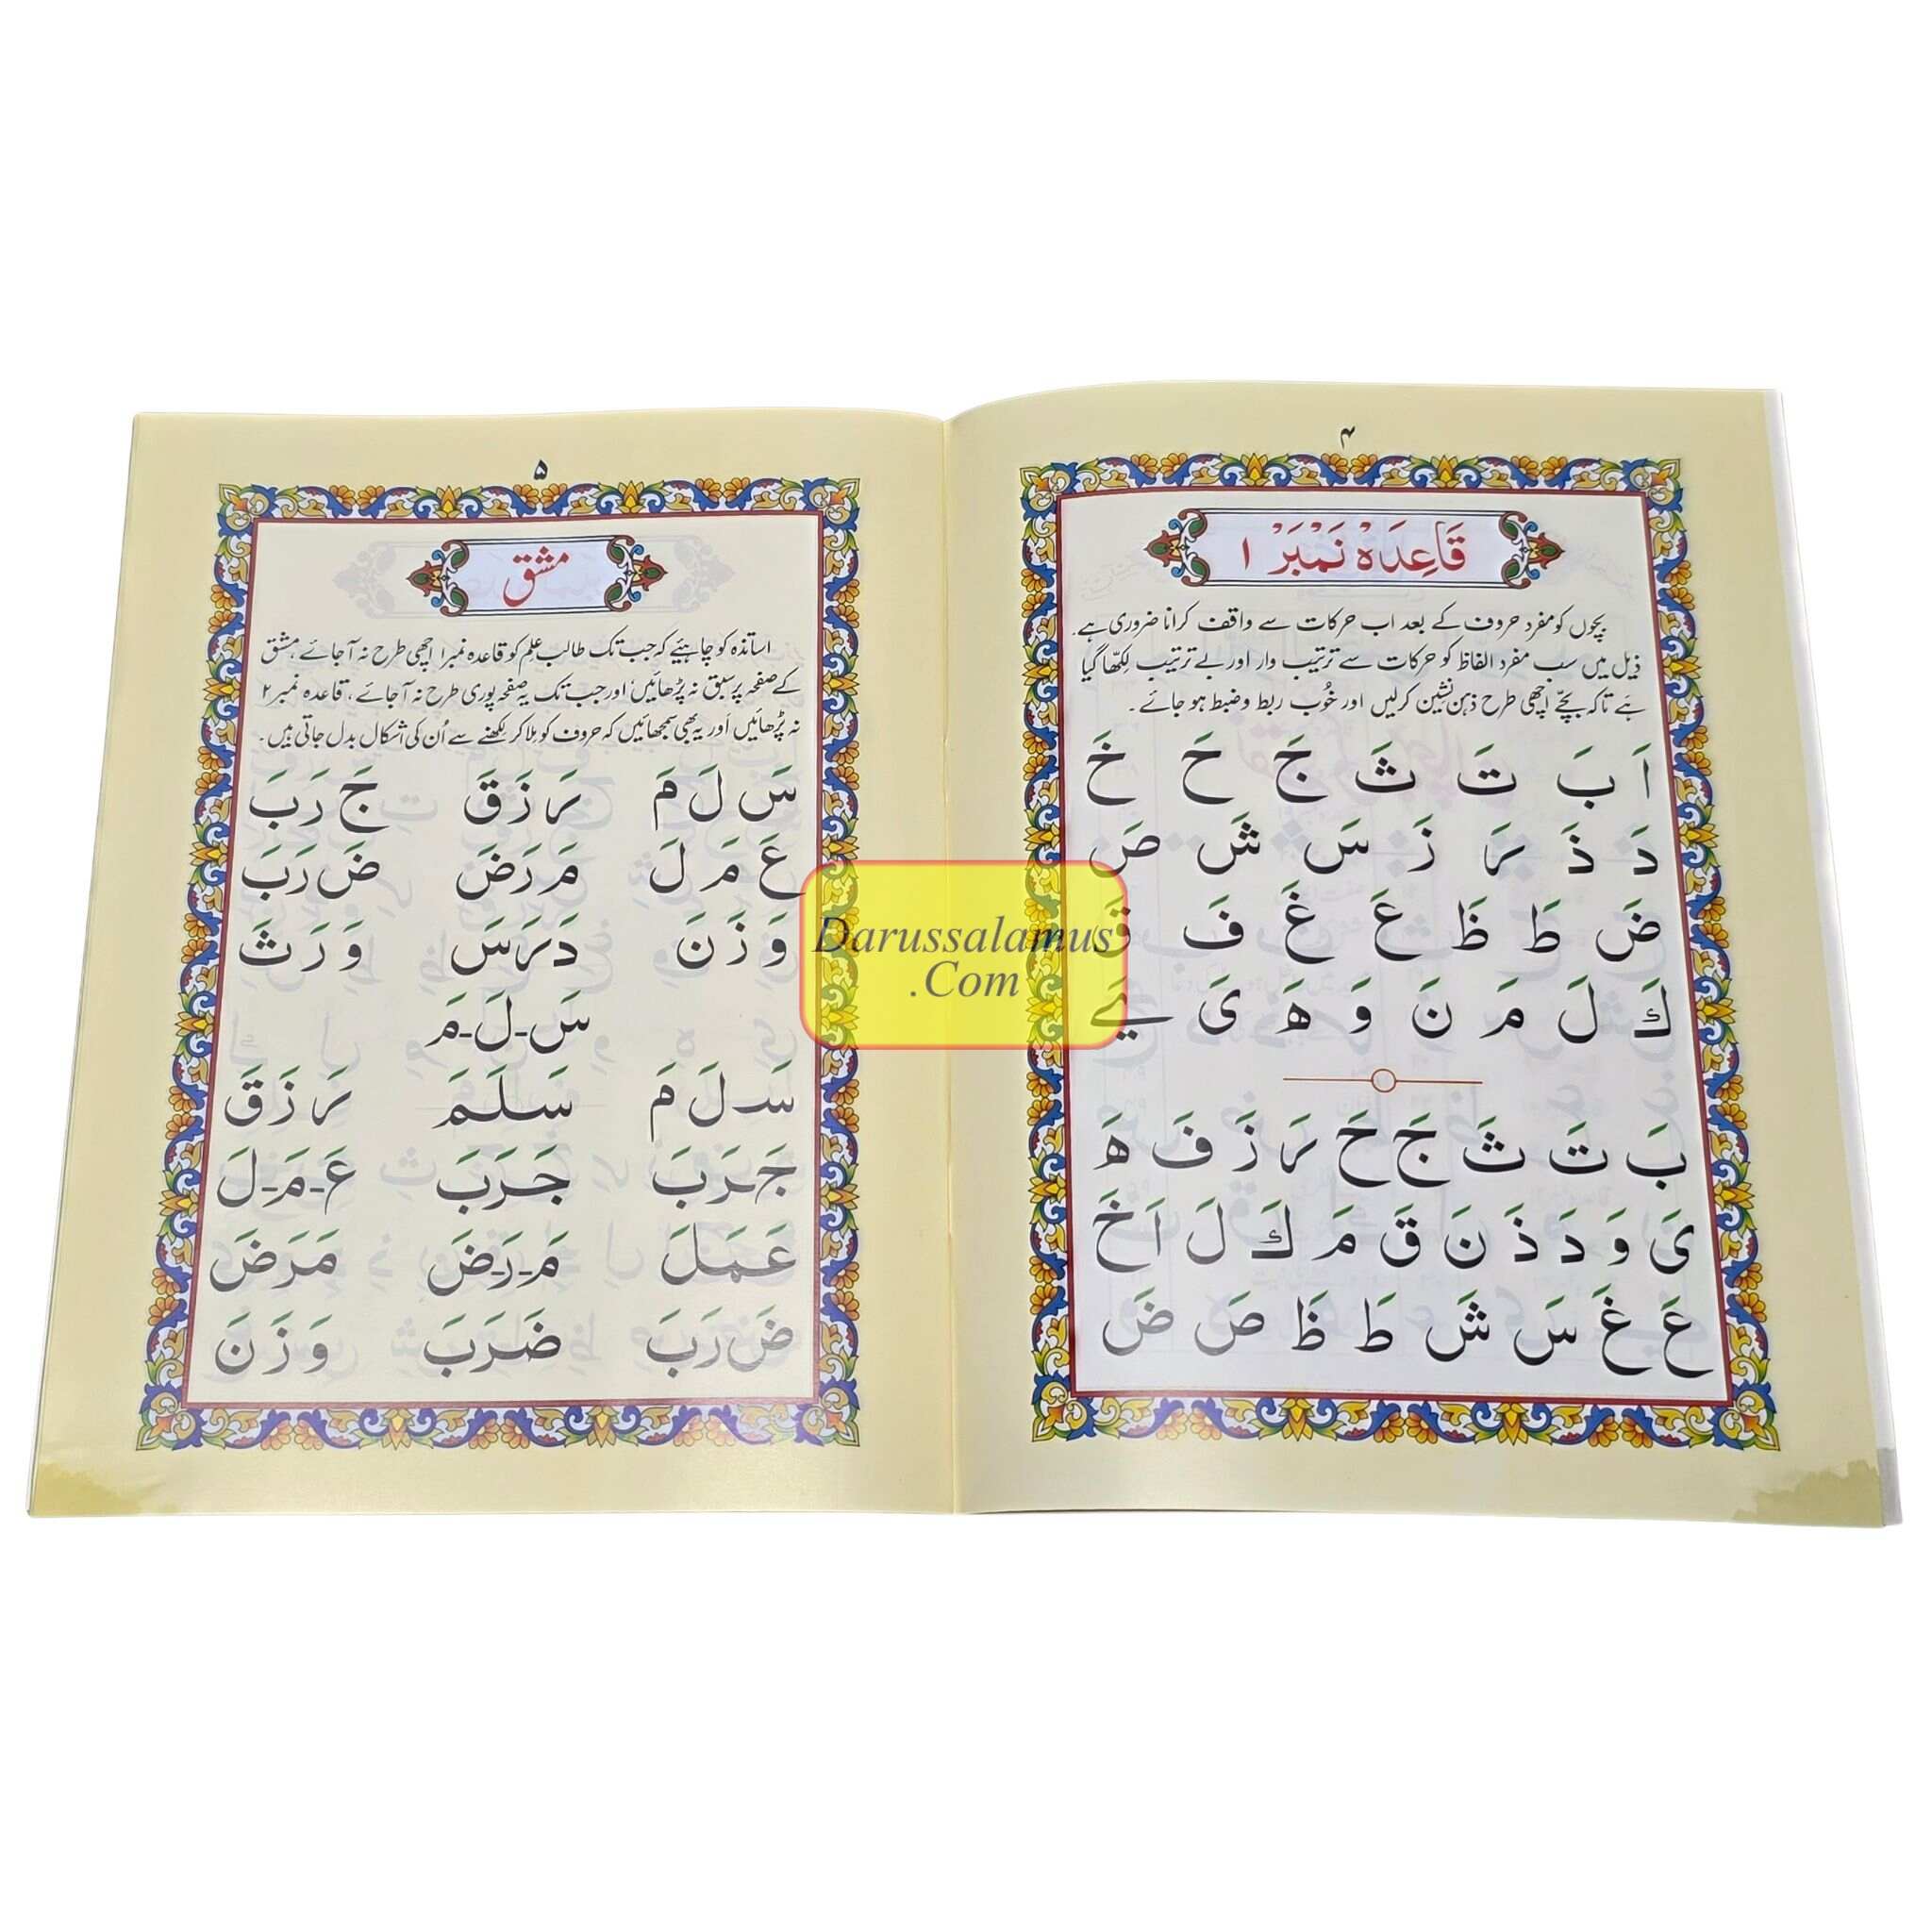 ۴
قَاعِدَہْ نَمْبَرْ ۱
بچوں کو مفرد حروف کے بعد اب حرکات سے واقف کرانا ضروری ہے۔
ذیل میں سب مفرد الفاظ کو حرکات سے ترتیب وار اور بے ترتیب لکھا گیا
ہے تاکہ بچّے اچھی طرح ذہن نشین کرلیں اور خُوب ربط وضبط ہو جائے۔
اَ بَ تَ ثَ جَ حَ خَ
دَ ذَ رَ زَ سَ شَ صَ
ضَ طَ ظَ عَ غَ فَ قَ
كَ لَ مَ نَ وَ هَ یَ یَے
بَ تَ ثَ جَ حَ رَ زَ فَ هَ
یَ وَ دَ ذَ نَ قَ مَ كَ لَ اَ خَ
عَ غَ سَ شَ طَ ظَ صَ ضَ
۵
مشق
اساتذہ کو چاہیئے کہ جب تک طالب علم کو قاعدہ نمبر۱ اچھی طرح نہ آجائے، مشق
کے صفحہ پر سبق نہ پڑھائیں اور جب تک یہ صفحہ پوری طرح نہ آجائے، قاعدہ نمبر ۲
نہ پڑھائیں اور یہ بھی سمجھائیں کہ حروف کو ملا کر لکھنے سے اُن کی اشکال بدل جاتی ہیں۔
سَ لَ مَ رَ زَ قَ جَ رَ بَ
عَ مَ لَ مَ رَ ضَ ضَ رَ بَ
وَ زَ نَ دَ رَ سَ وَ رَ ثَ
سَ-لَ-مَ
سَـ لَ مَ سَلَمَ رَ زَ قَ
جَـرَبَ جَرَبَ عَ-مَ-لَ
عَمَلَ مَ-رَ-ضَ مَرَضَ
ضَ رَ بَ ضَرَبَ وَ زَ نَ
Darussalamus
.Com